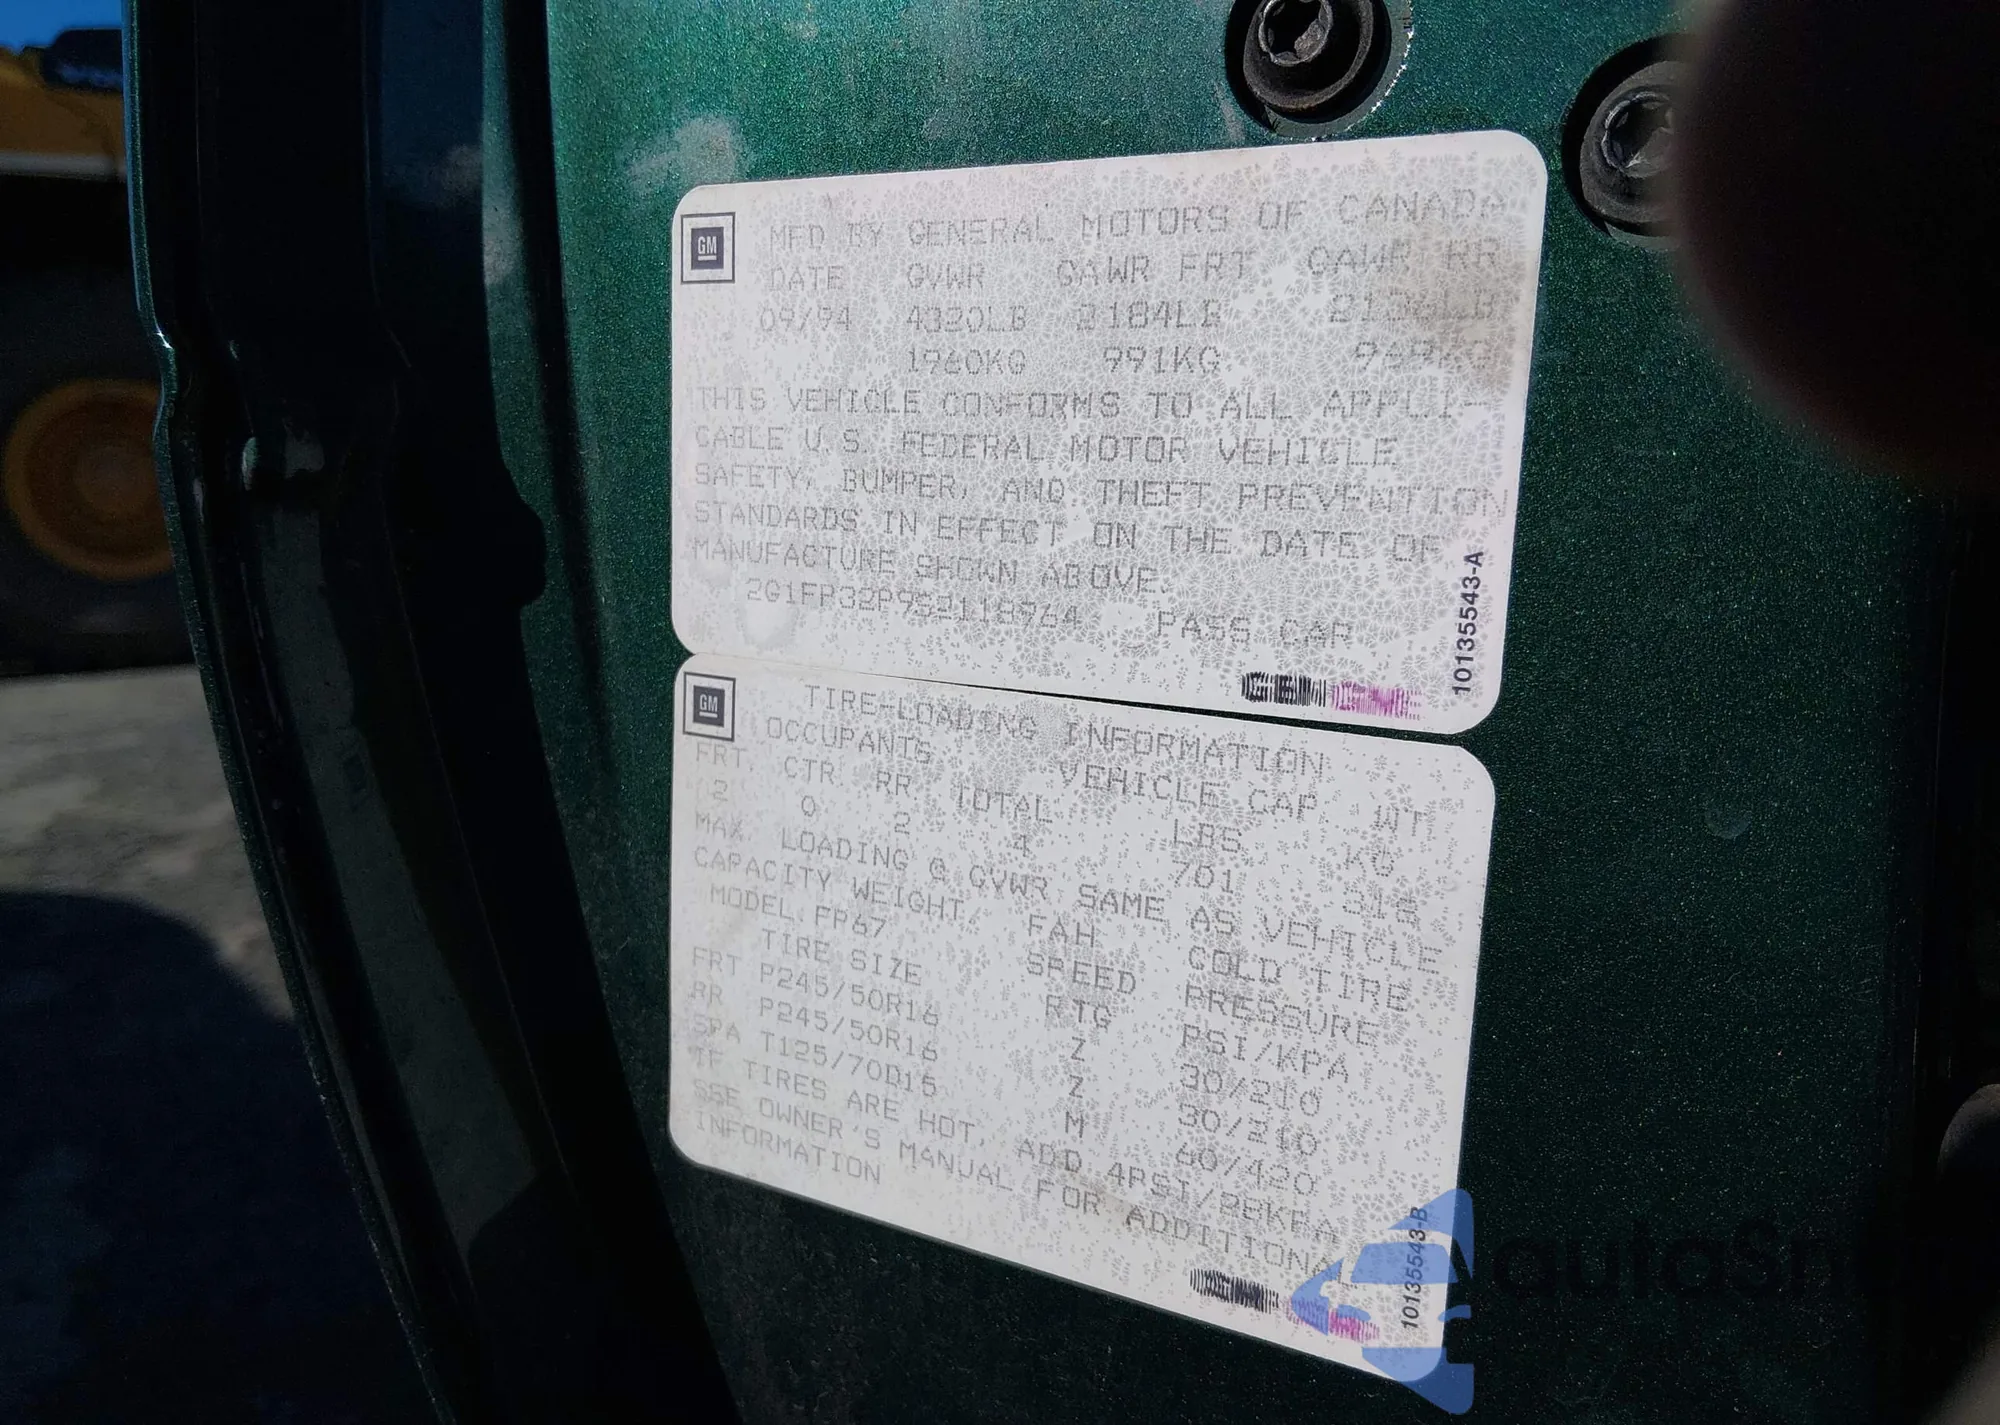 GM
MFD BY GENERAL MOTORS OF CANADA
DATE GVWR GAWR FRT GAWR RR
09/94 4320LB 2184LB 2136LB
1960KG 991KG 969KG
THIS VEHICLE CONFORMS TO ALL APPLI-
CABLE U.S. FEDERAL MOTOR VEHICLE
SAFETY, BUMPER, AND THEFT PREVENTION
STANDARDS IN EFFECT ON THE DATE OF
MANUFACTURE SHOWN ABOVE.
2G1FP32P9S2118964 PASS CAR
10135543-A
GM
TIRE-LOADING INFORMATION
OCCUPANTS VEHICLE CAP. WT
FRT. CTR. RR. TOTAL LBS KG
2 0 2 4 701 318
MAX. LOADING @ GVWR SAME AS VEHICLE
CAPACITY WEIGHT. FAH COLD TIRE
MODEL FP67 SPEED PRESSURE
TIRE SIZE RTG PSI/KPA
FRT P245/50R16 Z 30/210
RR P245/50R16 Z 30/210
SPA T125/70D15 M 60/420
IF TIRES ARE HOT, ADD 4PSI/28KPA
SEE OWNER'S MANUAL FOR ADDITIONAL
INFORMATION
10135543-B